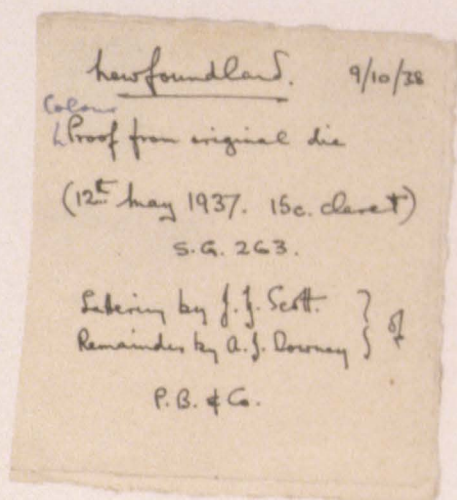 Newfoundland. 9/10/38
Colour
Proof from original die
(12th May 1937. 15c. claret)
S.G. 263.
Lettering by J. J. Scott. } of
Remainder by A. J. Downey }
P.B. & Co.